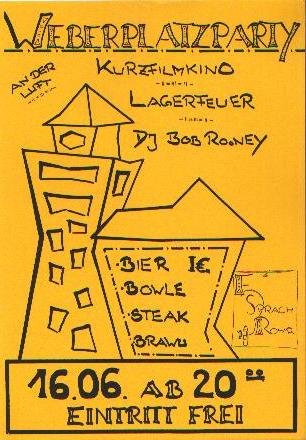 WEBERPLATZPARTY
AN DER
LUFT
KURZFILMKINO
LAGERFEUER
DJ BOB ROONEY
BIER 1€
BOWLE
STEAK
SPRACH
ROHR
16.06. AB 20 00
EINTRITT FREI